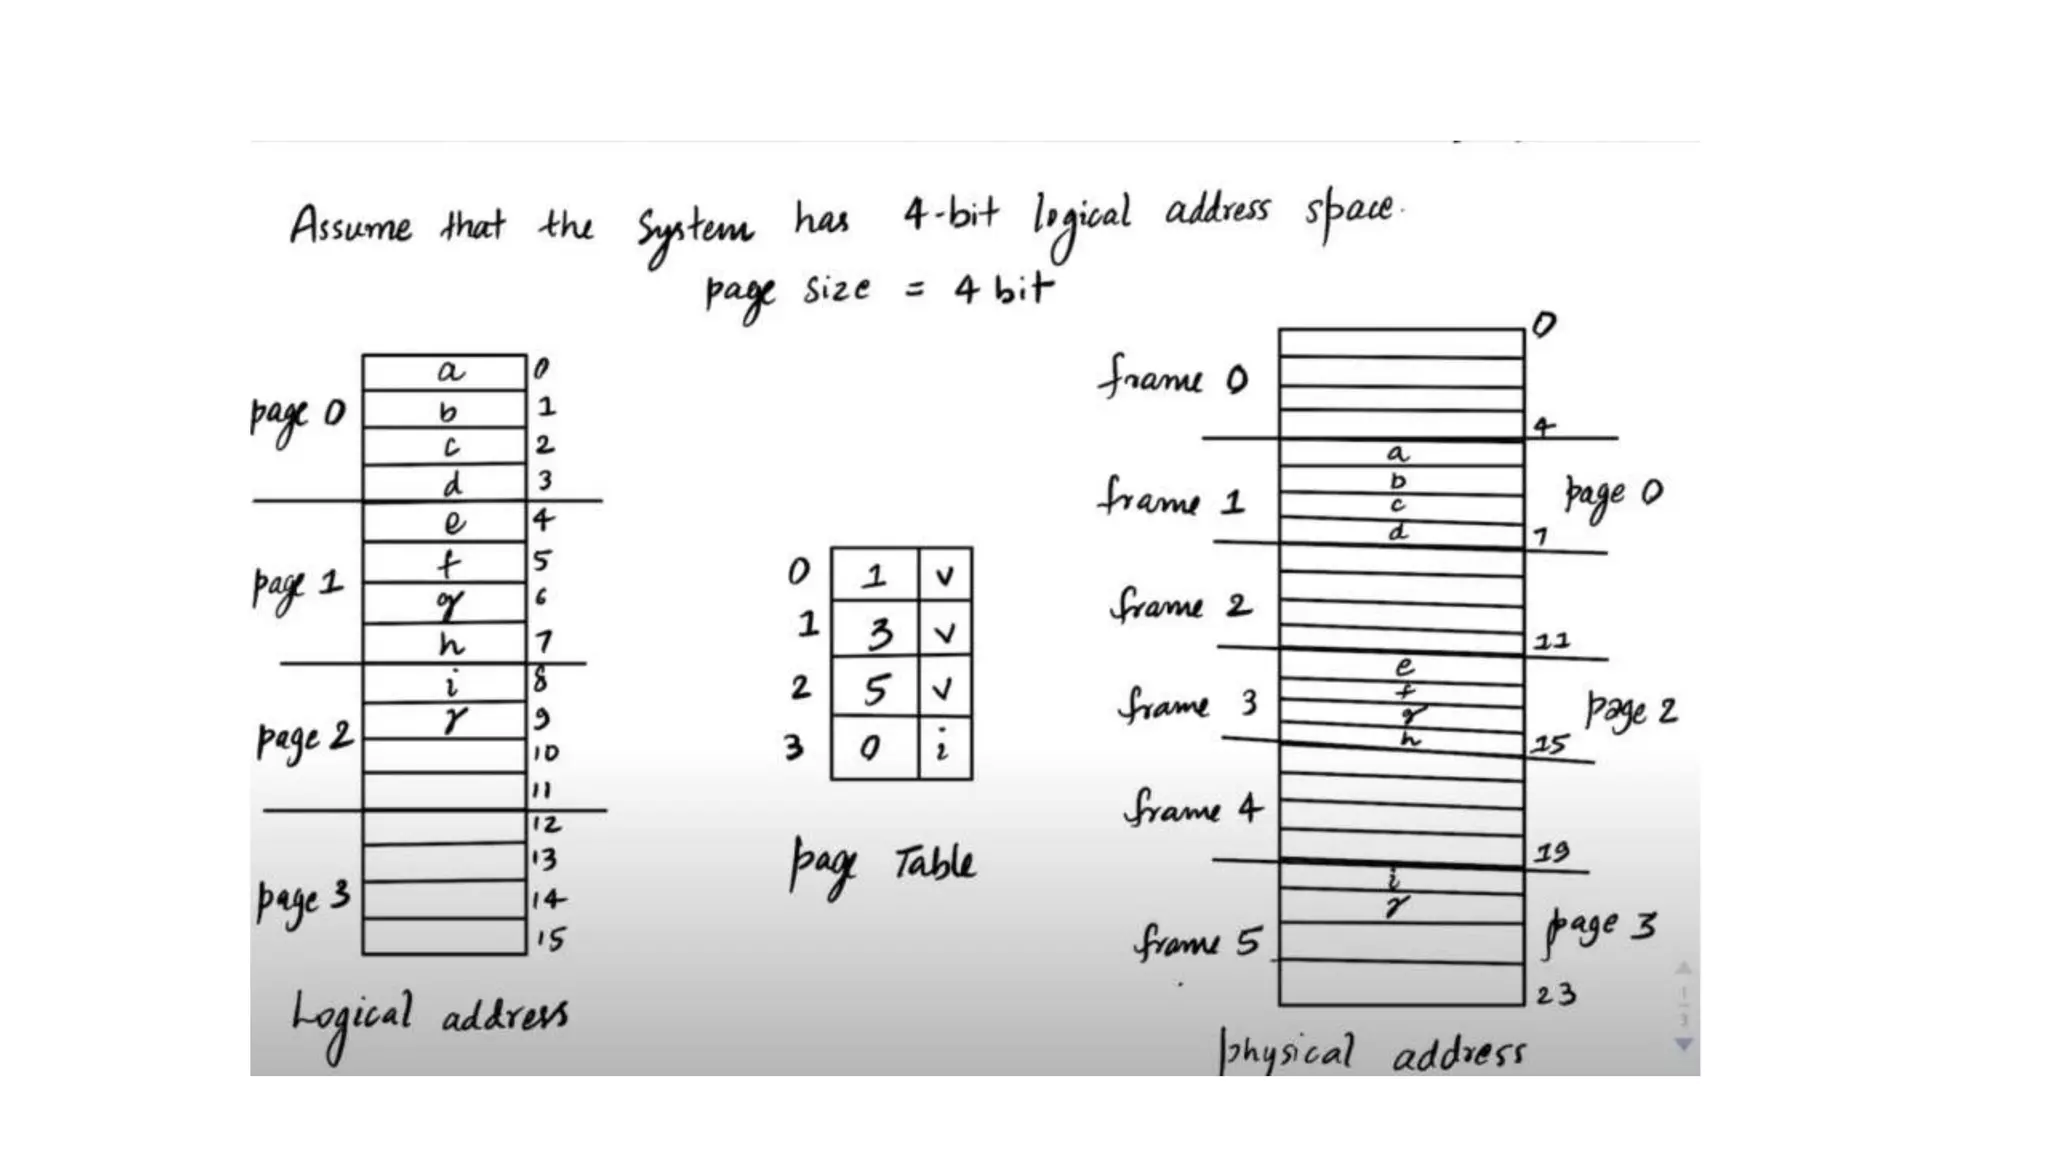 Assume that the system has 4-bit logical address space.
page size = 4 bit
page 0
a 0
b 1
c 2
d 3
page 1
e 4
f 5
g 6
h 7
page 2
i 8
r 9
10
11
page 3
12
13
14
15
Logical address
0 1 v
1 3 v
2 5 v
3 0 i
page Table
0
frame 0
4
frame 1
a
b
c
d
7
page 0
frame 2
11
frame 3
e
f
g
h
15
page 2
frame 4
19
frame 5
i
r
page 3
23
physical address